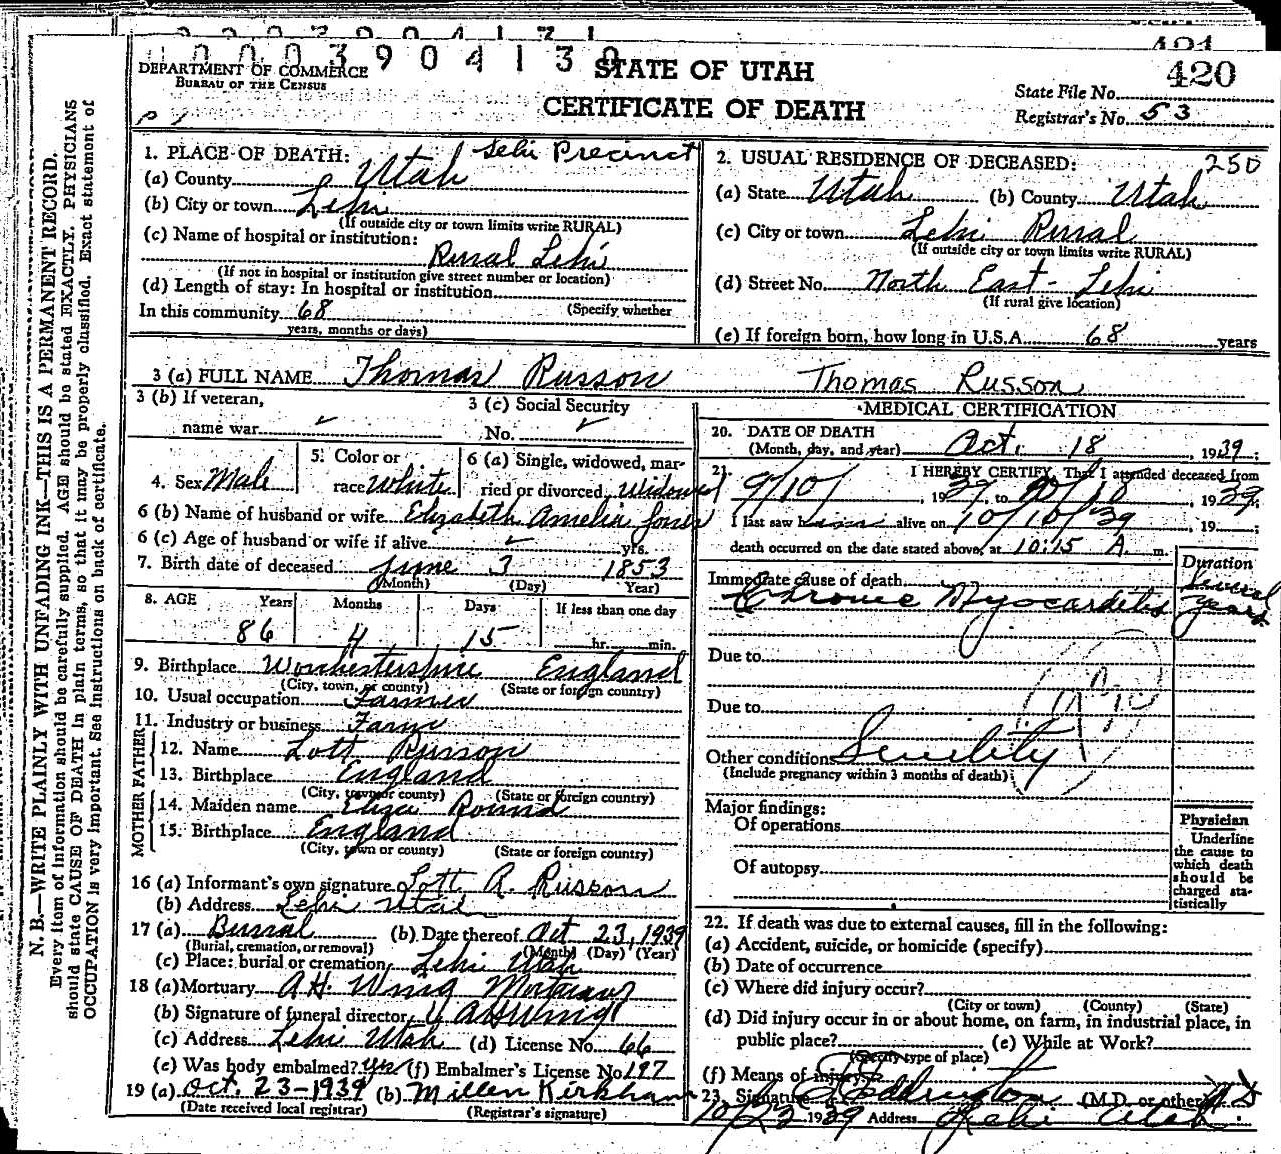 0 0 0 3 9 0 4 1 3 0
421
420
DEPARTMENT OF COMMERCE
BUREAU OF THE CENSUS
STATE OF UTAH
CERTIFICATE OF DEATH
State File No.
Registrar's No. 53
N. B.—WRITE PLAINLY WITH UNFADING INK—THIS IS A PERMANENT RECORD.
Every item of information should be carefully supplied. AGE should be stated EXACTLY. PHYSICIANS
should state CAUSE OF DEATH in plain terms, so that it may be properly classified. Exact statement of
OCCUPATION is very important. See instructions on back of certificate.
1. PLACE OF DEATH: Lehi Precinct
(a) County Utah
(b) City or town Lehi
(If outside city or town limits write RURAL)
(c) Name of hospital or institution:
Rural Lehi
(If not in hospital or institution give street number or location)
(d) Length of stay: In hospital or institution
In this community 68 (Specify whether
years, months or days)
2. USUAL RESIDENCE OF DECEASED: 250
(a) State Utah (b) County Utah
(c) City or town Lehi Rural
(If outside city or town limits write RURAL)
(d) Street No. North East - Lehi
(If rural give location)
(e) If foreign born, how long in U.S.A. 68 years
3 (a) FULL NAME Thomas Russon Thomas Russon
3 (b) If veteran,
name war
3 (c) Social Security
No.
4. Sex Male
5. Color or
race White
6 (a) Single, widowed, mar-
ried or divorced Widowed
6 (b) Name of husband or wife Elizabeth Amelia Jones
6 (c) Age of husband or wife if alive yrs.
7. Birth date of deceased June 3 1853
(Month) (Day) Year)
8. AGE Years Months Days If less than one day
86 4 15 hr. min.
9. Birthplace Worchestershire England
(City, town, or county) (State or foreign country)
10. Usual occupation Farmer
11. Industry or business Farm
FATHER
12. Name Lott Russon
13. Birthplace England
(City, town or county) (State or foreign country)
MOTHER
14. Maiden name Eliza Round
15. Birthplace England
(City, town or county) (State or foreign country)
16 (a) Informant's own signature Lott R. Russon
(b) Address Lehi Utah
17 (a) Burial (b) Date thereof Oct 23, 1939
(Burial, cremation, or removal) (Month) (Day) (Year)
(c) Place: burial or cremation Lehi Utah
18 (a) Mortuary A.H. Wing Mortuary
(b) Signature of funeral director A H Wing
(c) Address Lehi Utah (d) License No. 66
(e) Was body embalmed? Yes (f) Embalmer's License No. 197
19 (a) Oct. 23-1939 (b) Millen Kirkham
(Date received local registrar) (Registrar's signature)
MEDICAL CERTIFICATION
20. DATE OF DEATH
(Month, day, and year) Oct. 18, 1939;
21. I HEREBY CERTIFY, That I attended deceased from
9/10/, 1939, to 10/10, 1939;
I last saw him alive on 10/10/39, 19 ;
death occurred on the date stated above, at 10:15 A. m.
Duration
Immediate cause of death
Chronic Myocarditis
Several
years
Due to
Due to
Other conditions Senility
(Include pregnancy within 3 months of death)
Major findings:
Of operations
Of autopsy
Physician
Underline
the cause to
which death
should be
charged sta-
tistically
22. If death was due to external causes, fill in the following:
(a) Accident, suicide, or homicide (specify)
(b) Date of occurrence
(c) Where did injury occur?
(City or town) (County) (State)
(d) Did injury occur in or about home, on farm, in industrial place, in
public place? (e) While at Work?
(Specify type of place)
(f) Means of injury
23. Signature Eddington (M.D. or other) M.D.
10/23 1939 Address Lehi Utah